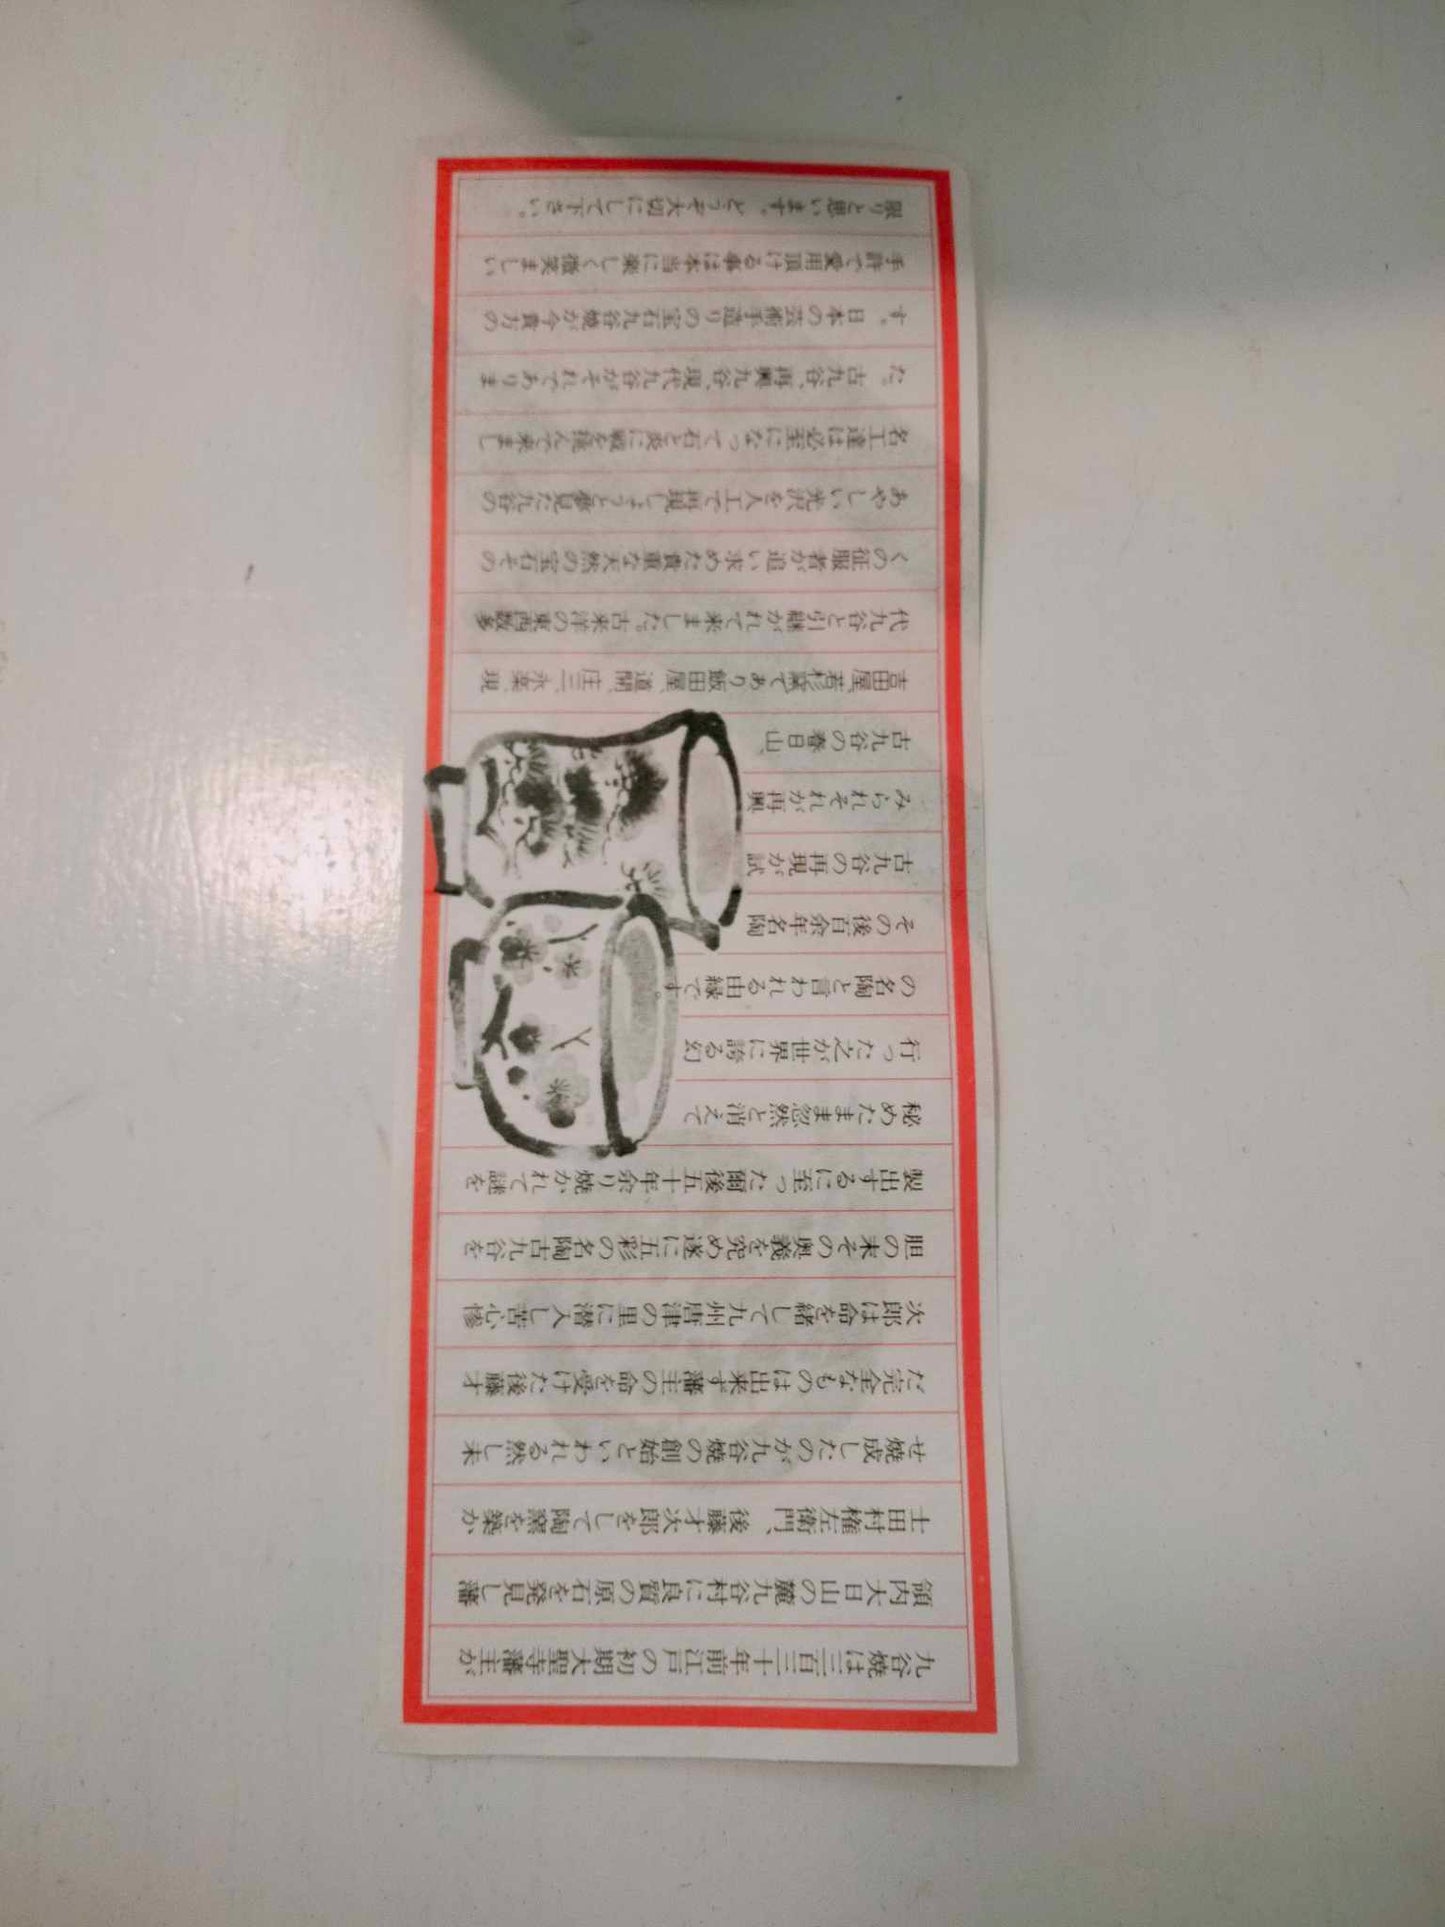 九谷焼は三百三十年前江戸の初期大聖寺藩主が
領内大日山の麓九谷村に良質の原石を発見し藩
士田村権左衛門、後藤才次郎をして陶窯を築か
せ焼成したのが九谷焼の創始といわれる然し未
だ完全なものは出来ず藩主の命を受けた後藤才
次郎は命を緒して九州唐津の里に潜入し苦心惨
胆の末その奥義を究め遂に五彩の名陶古九谷を
製出するに至った爾後五十年余り焼かれて謎を
秘めたまま忽然と消えて
行った之が世界に誇る幻
の名陶と言われる由縁です。
その後百余年名陶
古九谷の再現が試
みられそれが再興
古九谷の春日山、
吉田屋、若杉窯であり飯田屋、道開、庄三、永楽、現
代九谷と引継がれて来ました。古来洋の東西数多
くの征服者が追い求めた貴重な天然の宝石その
あやしい光沢を人工で再現しようと夢見た九谷の
名工達は必至になって石と炎に戦を挑んで来まし
た。古九谷、再興九谷、現代九谷がそれであります
す。日本の芸術手造りの宝石九谷焼が今貴方の
手許で愛用頂ける事は本当に楽しく微笑ましい
限りと思います。どうぞ大切にして下さい。